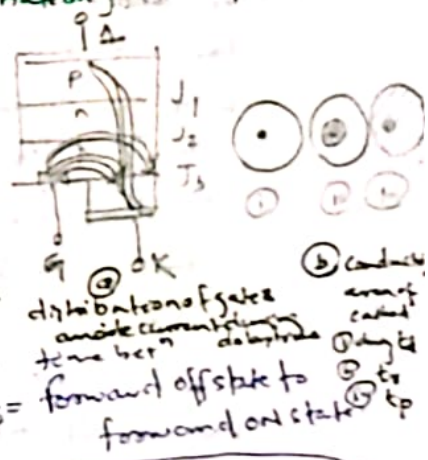 A
P
n
J1
J2
J3
G
K
ⓐ
distribution of gate &
anode current during
time betn
ⓑ conducting
area of
during td
tr
tp
= forward off state to
forward on state